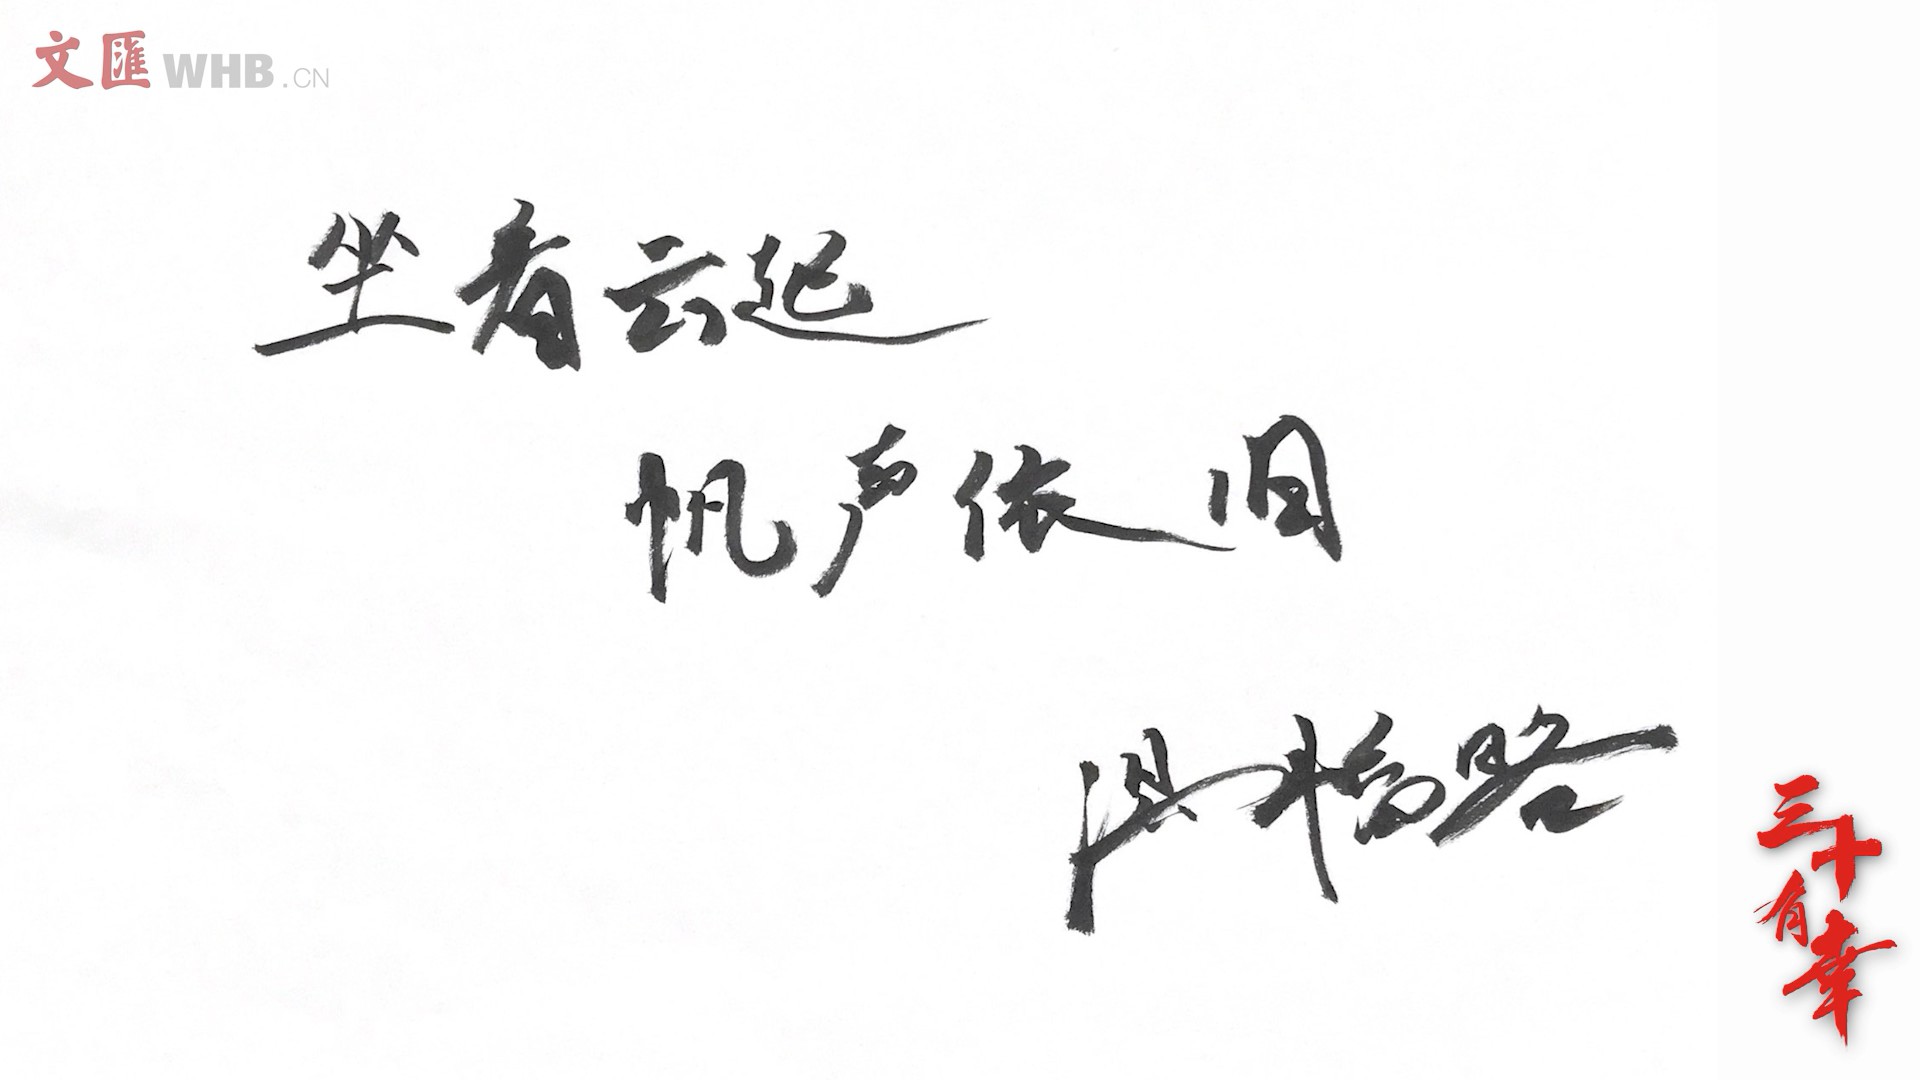 文匯 WHB.CN
坐看云起
帆声依旧
三十有幸